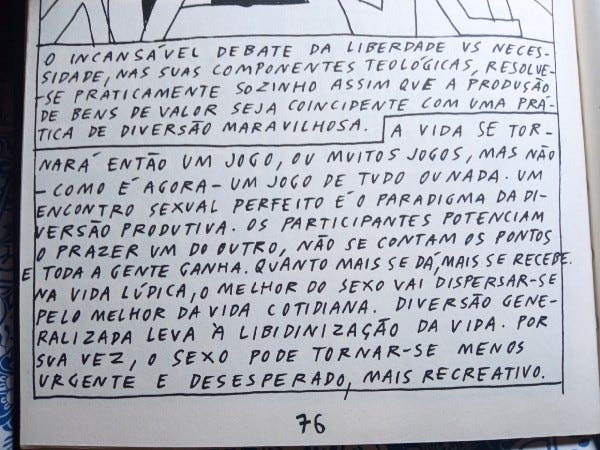 O INCANSÁVEL DEBATE DA LIBERDADE VS NECES-
SIDADE, NAS SUAS COMPONENTES TEOLÓGICAS, RESOLVE-
-SE PRATICAMENTE SOZINHO ASSIM QUE A PRODUÇÃO
DE BENS DE VALOR SEJA COINCIDENTE COM UMA PRÁ-
TICA DE DIVERSÃO MARAVILHOSA. A VIDA SE TOR-
NARÁ ENTÃO UM JOGO, OU MUITOS JOGOS, MAS NÃO
- COMO É AGORA - UM JOGO DE TUDO OU NADA. UM
ENCONTRO SEXUAL PERFEITO É O PARADIGMA DA DI-
VERSÃO PRODUTIVA. OS PARTICIPANTES POTENCIAM
O PRAZER UM DO OUTRO, NÃO SE CONTAM OS PONTOS
E TODA A GENTE GANHA. QUANTO MAIS SE DÁ, MAIS SE RECEBE.
NA VIDA LÚDICA, O MELHOR DO SEXO VAI DISPERSAR-SE
PELO MELHOR DA VIDA COTIDIANA. DIVERSÃO GENE-
RALIZADA LEVA À LIBIDINIZAÇÃO DA VIDA. POR
SUA VEZ, O SEXO PODE TORNAR-SE MENOS
URGENTE E DESESPERADO, MAIS RECREATIVO.
76